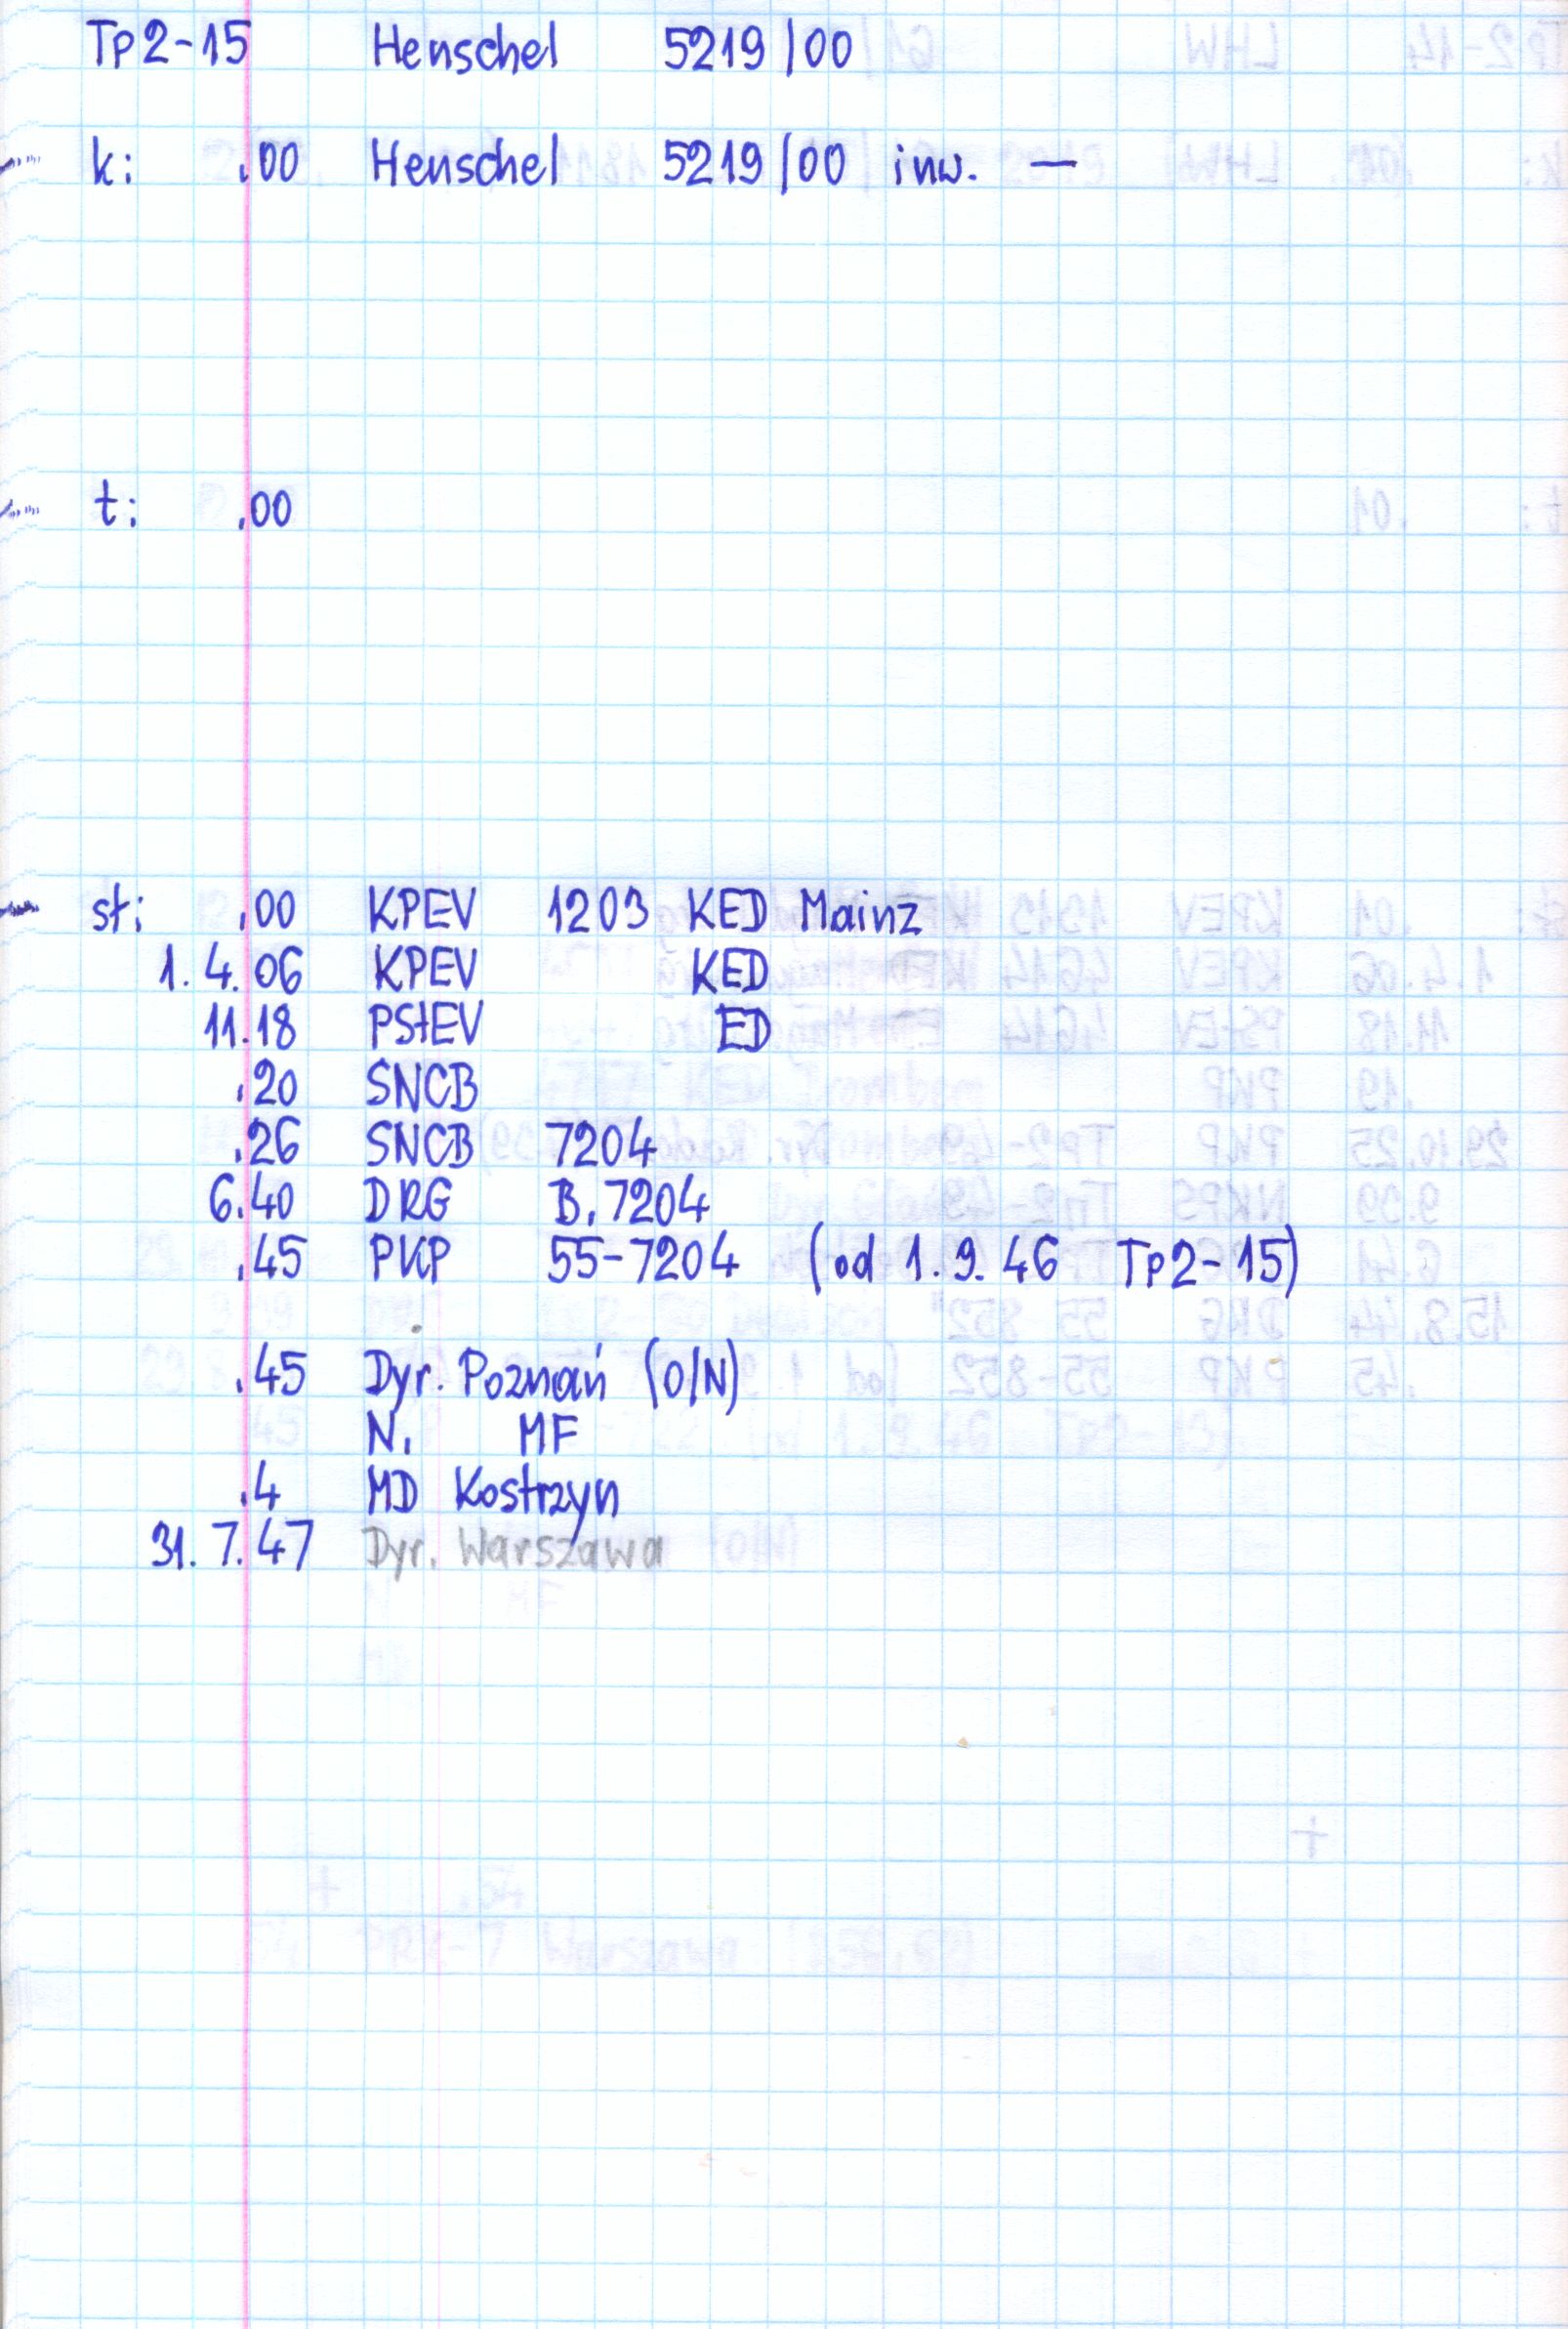 Tp2-15 Henschel 5219/00
k: .00 Henschel 5219/00 inw. —
t: .00
st: .00 KPEV 1203 KED Mainz
1.4.06 KPEV KED
11.18 PStEV ED
.20 SNCB
.26 SNCB 7204
6.40 DRG B.7204
.45 PKP 55-7204 (od 1.9.46 Tp2-15)
.45 Dyr. Poznań (O/N)
N. MF
.4 MD Kostrzyn
31.7.47 Dyr. Warszawa